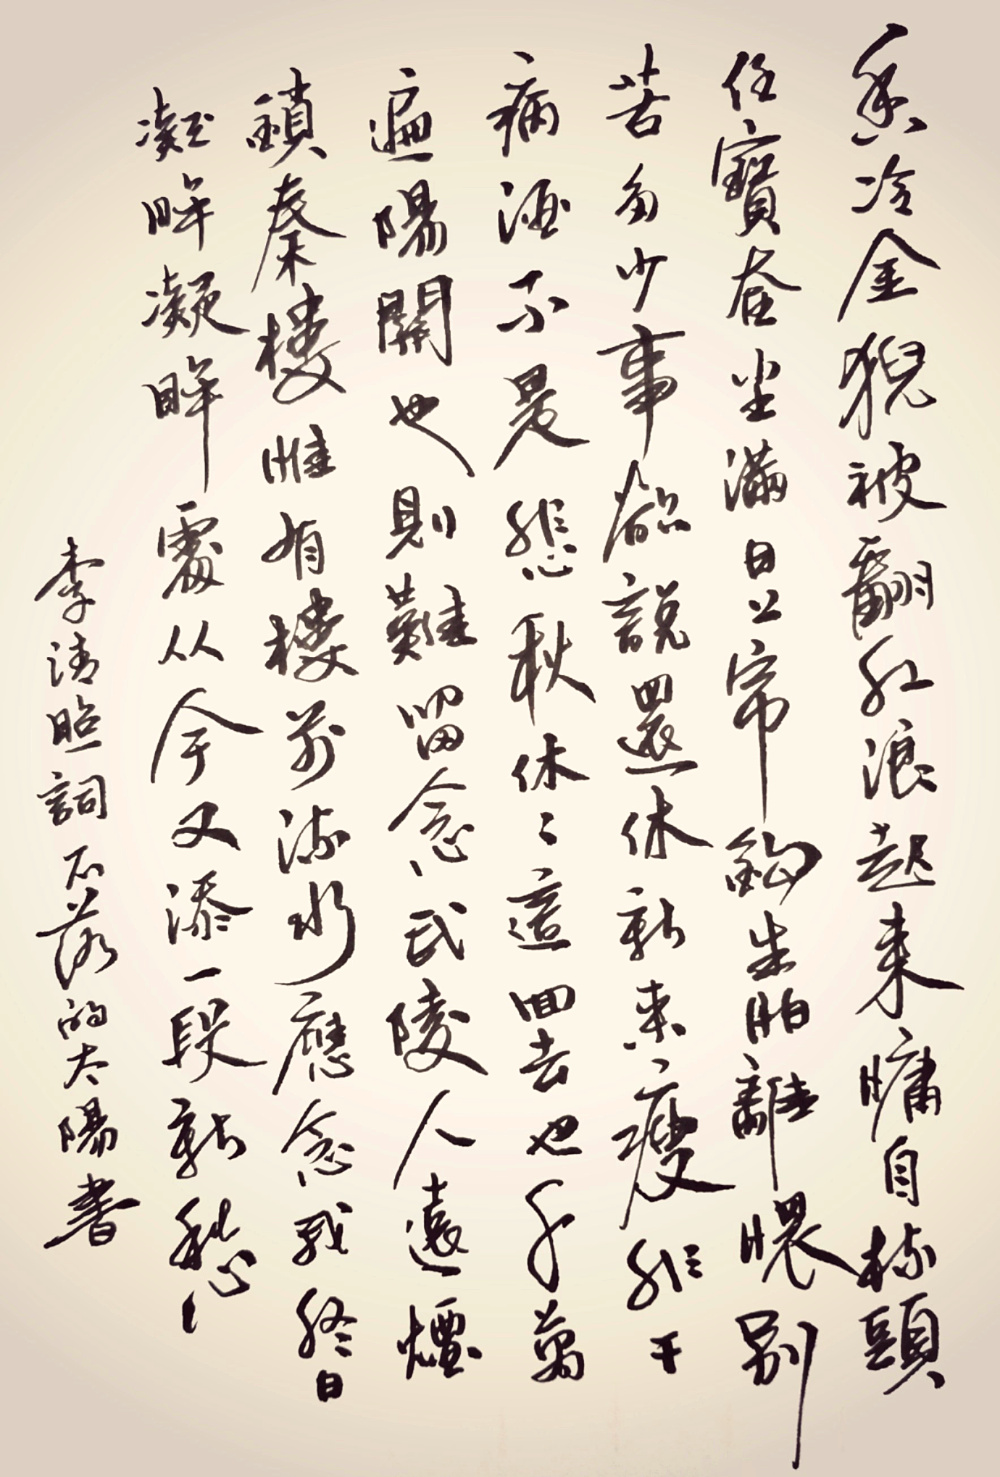 香冷金猊被翻紅浪起来慵自梳頭
任寶奩尘滿日上帘鉤生怕離懷別
苦多少事欲說還休新来瘦非干
病酒不是悲秋休〻這回去也千萬
遍陽關也則難留念武陵人遠煙
鎖秦樓惟有樓前流水應念我終日
凝眸凝眸處从今又添一段新愁
李清照詞不落的太陽書